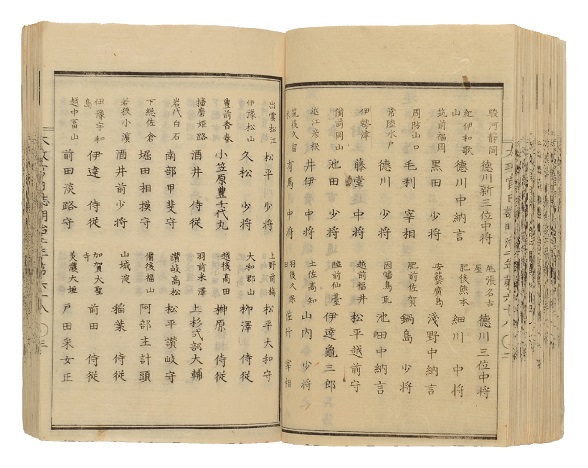 駿河静岡 德川新三位中将 尾張名古屋 德川三位中将
紀伊和歌山 德川中納言 肥後熊本 細川中将
筑前福岡 黒田少将 安藝廣島 浅野中納言
周防山口 毛利宰相 肥前佐賀 鍋島少将
常陸水戸 德川少将 因幡鳥取 池田中納言
伊勢津 藤堂中将 越前福井 松平越前守
備前岡山 池田少将 陸前仙臺 伊達龜三郎
近江彦根 井伊中将 土佐高知 山内少将
筑後久留 有馬中将 羽後久保 佐竹宰相
出雲松江 松平少将 上野前橋 松平大和守
伊豫松山 久松少将 大和郡山 柳澤侍従
豊前香春 小笠原豊千代丸 越後高田 榊原侍従
播磨姫路 酒井侍従 羽前米澤 上杉式部大輔
岩代白石 南部甲斐守 讃岐高松 松平讃岐守
下総佐倉 堀田相摸守 備後福山 阿部主計頭
若狭小濱 酒井前少将 山城淀 稲葉侍従
伊豫宇和島 伊達侍従 加賀大聖寺 前田侍従
越中富山 前田淡路守 美濃大垣 戸田采女正